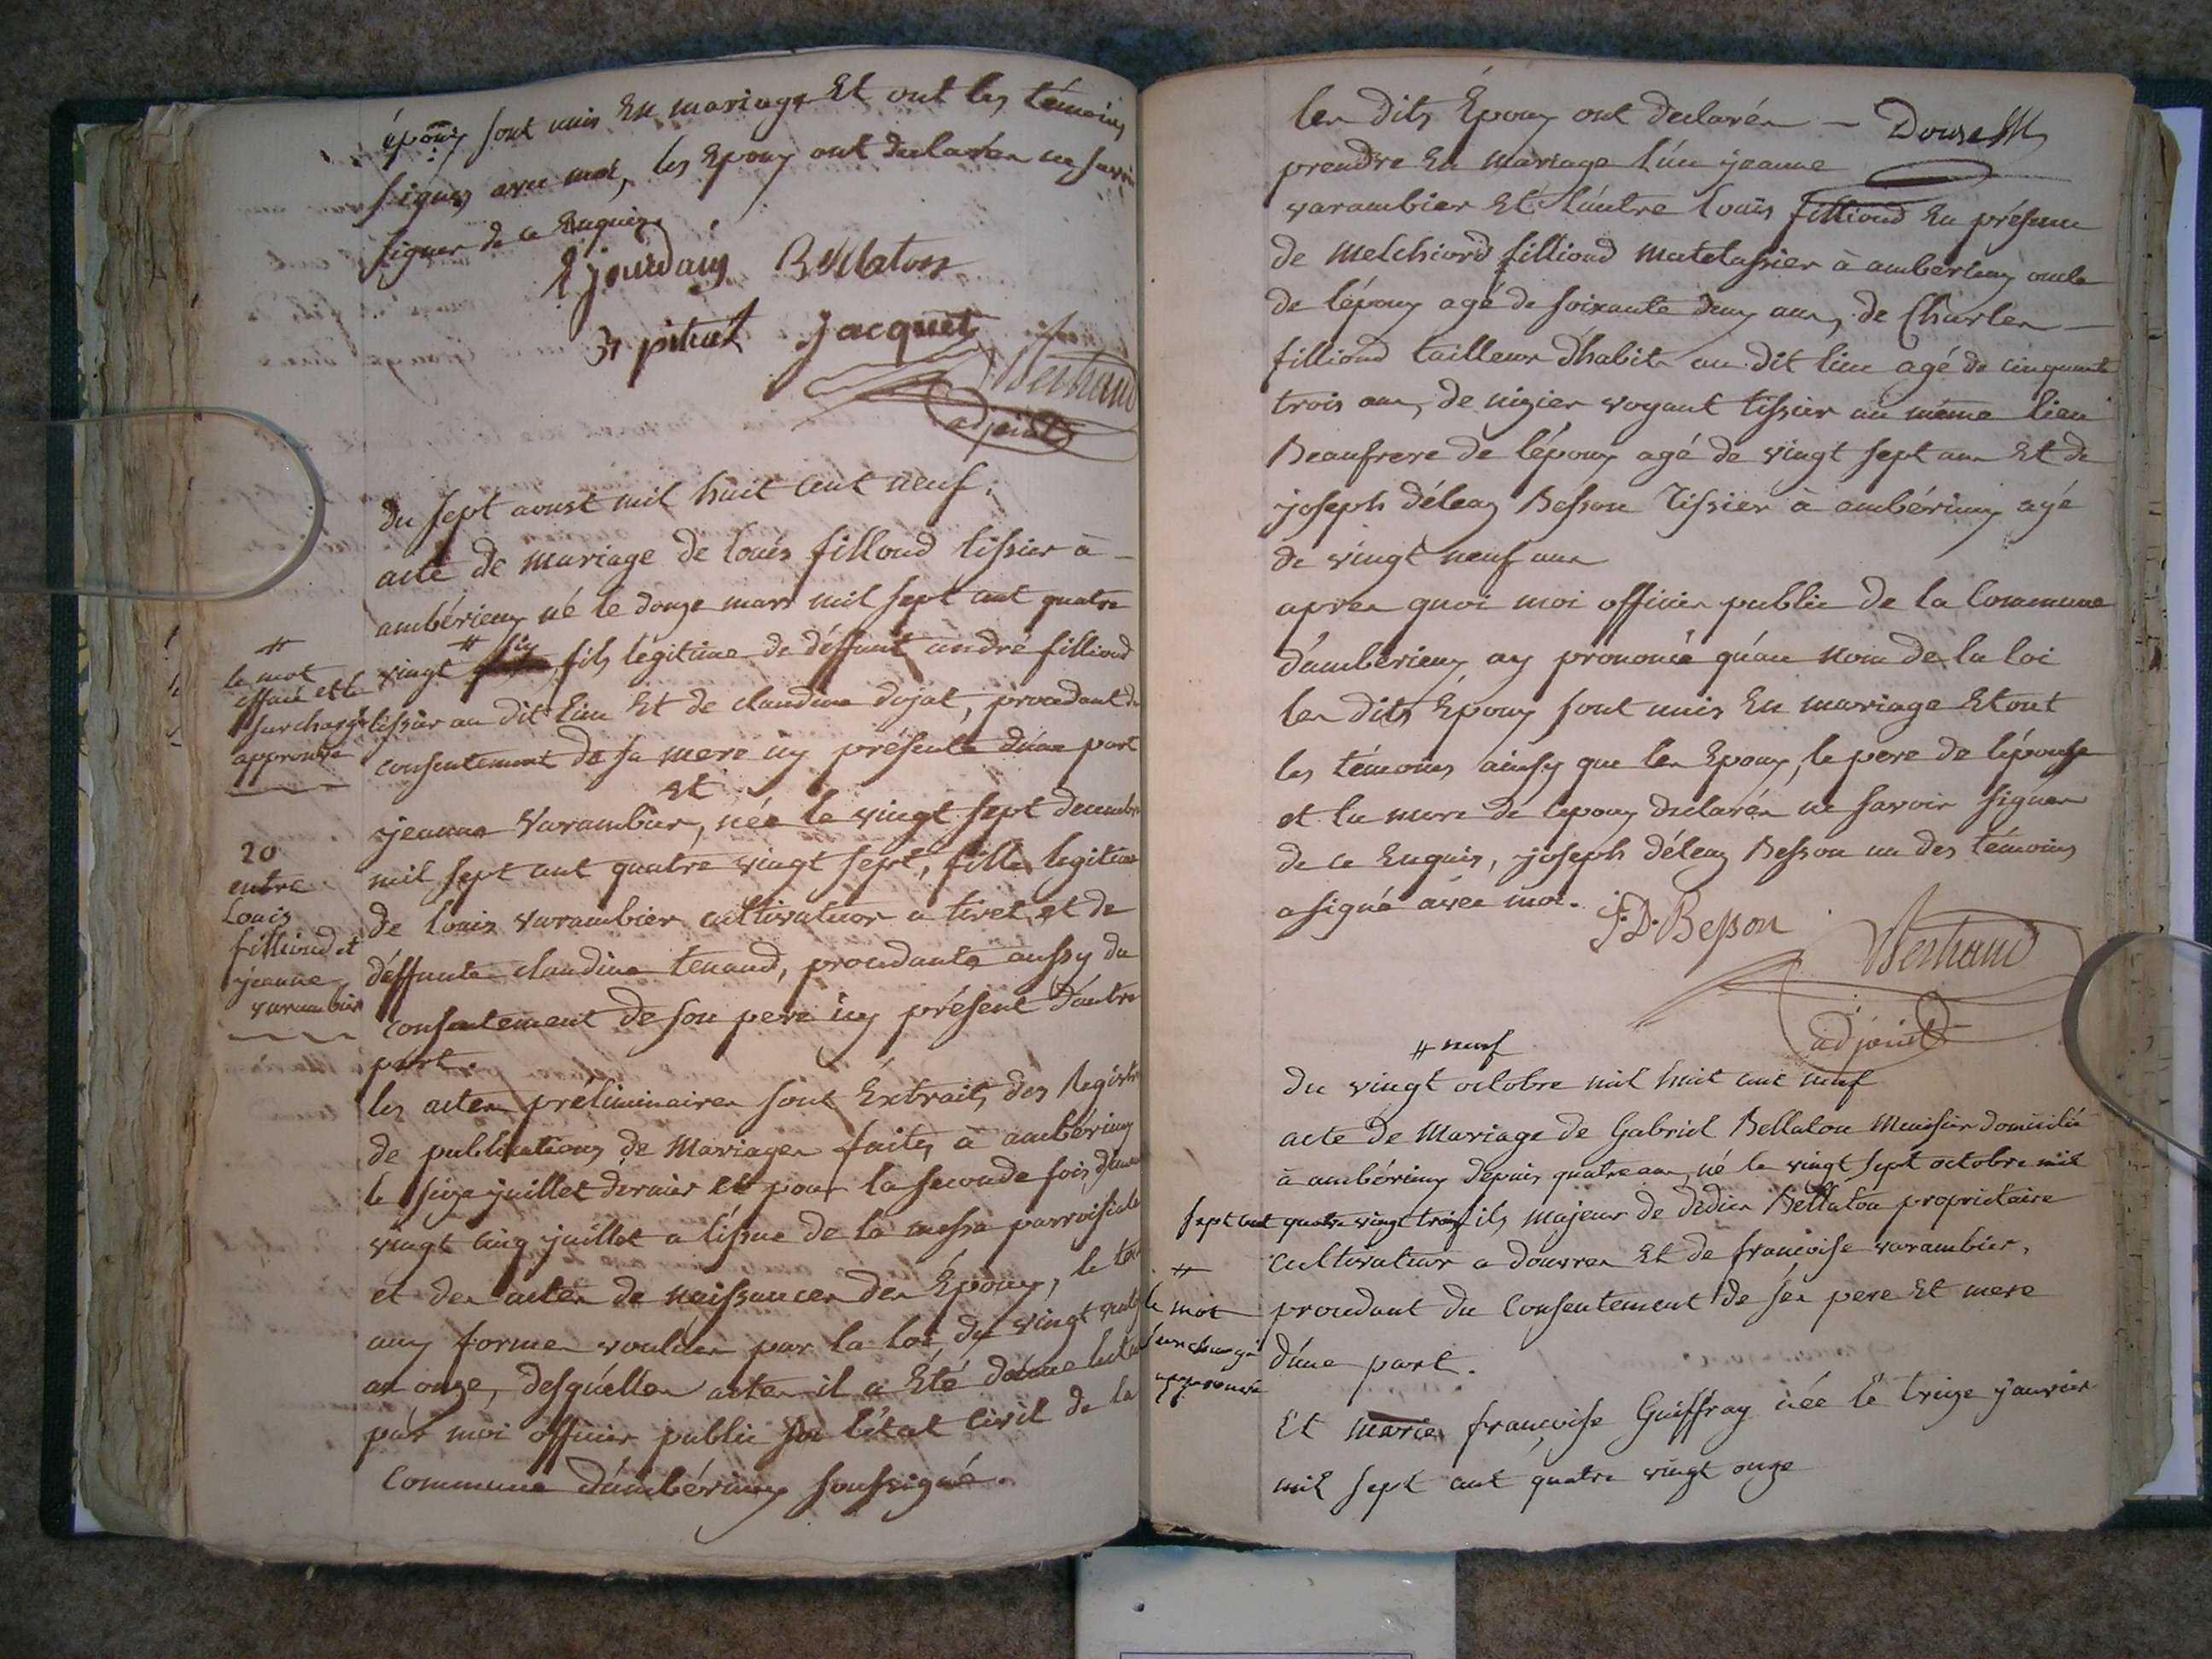 époux sont unis En mariage Et ont les témoins
signés avec moi, les Epoux ont declarén ne savoir
signer de ce Enquis
jourdain Bellaton
Jacquet
Bertrand
adjoint
du sept aoust mil huit cent neuf.
acte de mariage de louis filloud tissier à
ambérieux né le douze mars mil sept cent quatre
vingt # six fils légitime de déffunt andré fillioud
tissier au dit lieu Et de claudine dojat, procedant du
consentement de sa mere icy présente d'une part
Et
jeanne Varambier, née le vingt sept decembre
mil sept cent quatre vingt sept, fille legitime
de louis varambier cultivateur a tiret et de
déffunte claudine tenaud, procedante aussy du
consentement de son pere icy présent d'autre
part.
les acten préliminairen sont Extraits des Registre
de publications de Mariagen faites à ambérieux
le seize juillet dernier et pour la seconde fois
vingt cinq juillet a l'issue de la messe parroisiale
et den acten de naissancen den Époux, le tout
aux formen vouluen par la loi, du vingt
an onze, desquéllen acten il a Été donné lecture
par moi officier public de l'état civil de la
commune d'ambérieux soussigné.
#
le mot
effacé et le
surchargé
approuvé
20
entre
Louis
fillioud et
jeanne
varambier
len dits Époux ont declarén —
prendre En mariage l'un jeanne
varambier Et l'autre louis fillioud En présence
de Melchiord fillioud matelassier à ambérieux oncle
de l'époux agé de soixante deux ans, de Charlen —
fillioud tailleur d'habits au dit lieu agé de cinquante
trois ans, de nizier voyant tissier au même lieu
Beaufrere de l'époux agé de vingt sept ans Et de
joseph déléaz Besson Tissier à ambérieux agé
de vingt neuf ans
apren quoi moi officier public de la Commune
d'ambérieux ay prononcé qu'au nom de la loi
len dits Époux sont unis En mariage Et ont
les témoins ainsy que len Epoux, le pere de l'épouse
et la mere de l'epoux declarén ne savoir signer
de ce Enquis, joseph déléaz Besson un des témoins
a signé avec moi.
J. D. Besson
Bertrand
adjoint
# neuf
Du vingt octobre mil huit cent neuf
acte de Mariage de Gabriel Bellaton Menisier domicilié
à ambérieux depuis quatre ans, né le vingt sept octobre mil
sept cent quatre vingt trois fils majeur de Didier Bellaton proprietaire
cultivateur a douvren Et de françoise varambier,
procedant du Consentement de sen pere Et mere
d'une part.
#
le mot
surchargé
approuvé
Et marie françoise Guiffray née le treize janvier
mil sept cent quatre vingt onze